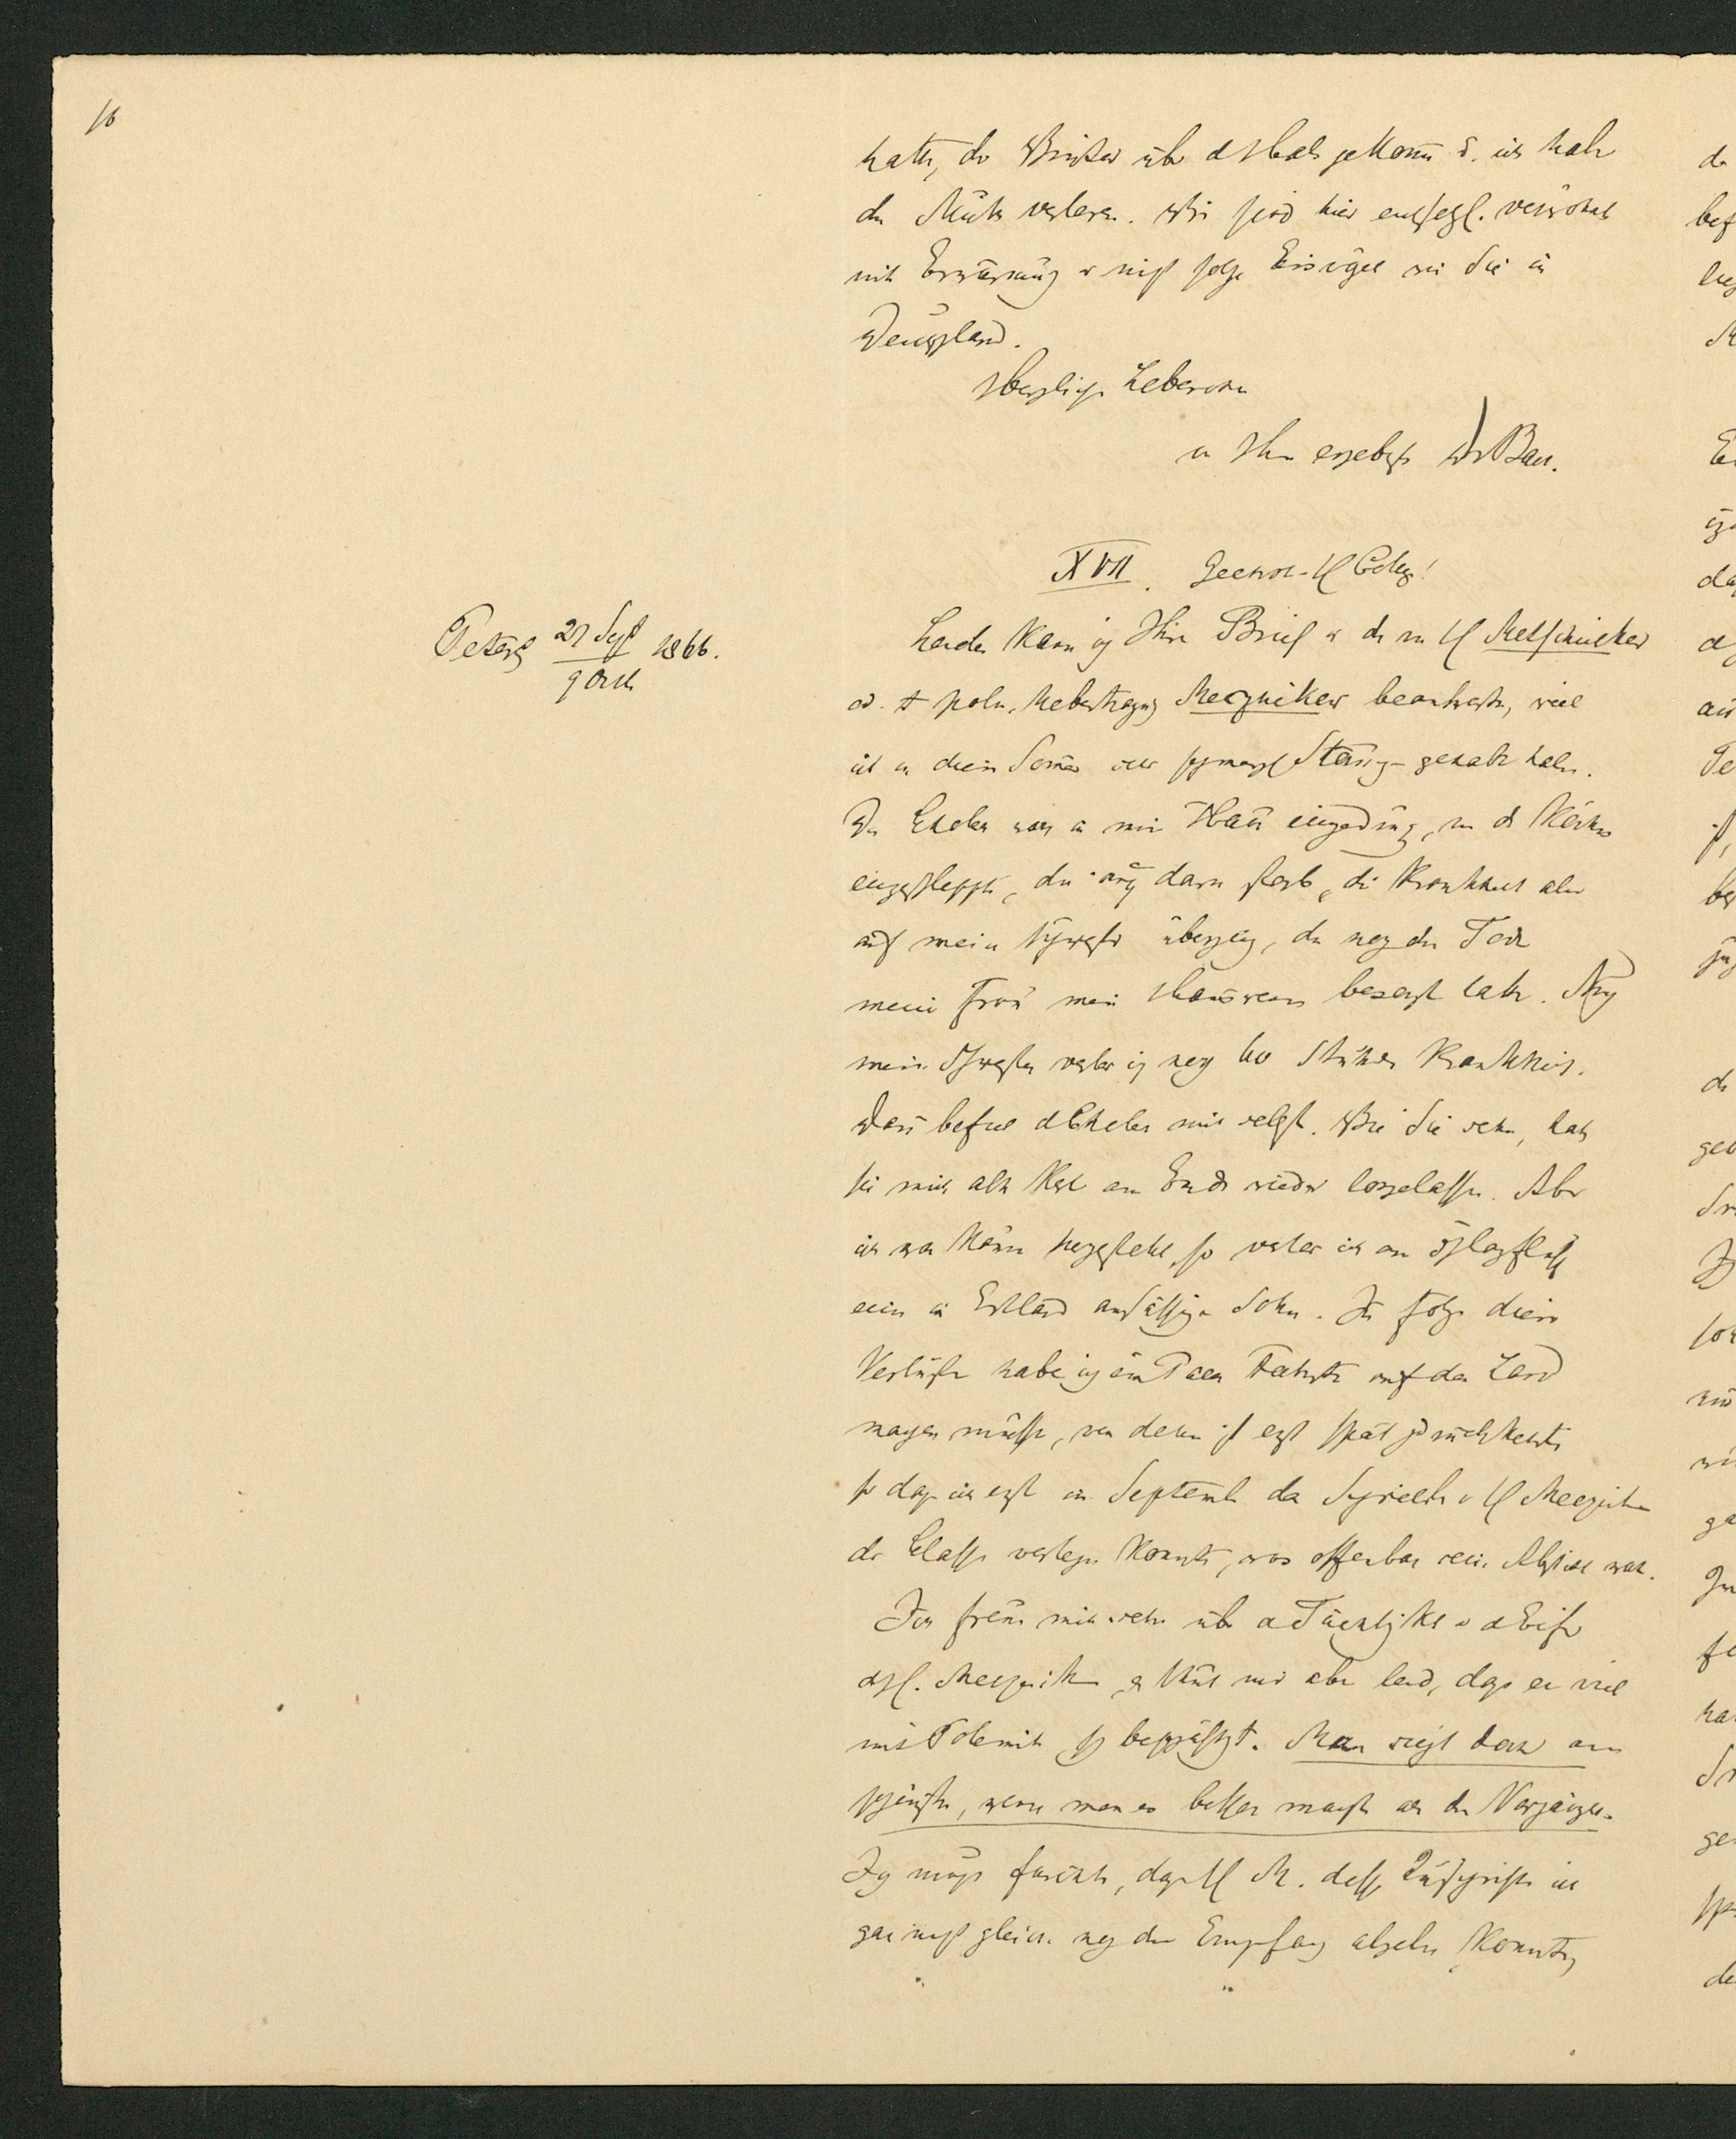 16
hatte, der Winter über d Hals gekomm u. ich habe
den Muth verloren. Wir sind hier entsetzl. verwöhnt
mit Erwärmung u nicht solche Eisvögel wie Sie in
Deutschland.
Herzliche Lebewohl
u Ihr ergebenst Dr Baer.
XVII. Geehrt. H College!
Petersb 27 Sept / 9 Octb 1866.
Leider kann ich Ihren Brief u den von H Metschnikow
od. poln. Uebertragung Mecznikow beantworten, weil
ich in diesem Sommer sehr schmerzl Störung gehabt habe.
Die Cholera war in mein Haus eingedrung, von der Köchin
eingeschleppt, die auch daran starb, die Krankheit aber
auf meine Schwester überging, die nach dem Tode
meiner Frau mein Hauswesen besorgt hatte. Auch
meine Schwester verlor ich nach 60 Stunden Krankheit.
Dann befiel d Cholera mich selbst. Wie Sie sehn, hat
sie mich alten Kerl am Ende wieder losgelassen. Aber
ich war kaum hergestellt, so verlor ich am Schlagfluss
einen in Estland ansässigen Sohn. In Folge dieser
Verluste habe ich ein Paar Fahrten auf das Land
machen müssen, von denen ich erst spät zurückkehrte
so dass ich erst im Septemb das Schreiben v H Mecznikow
der Classe vorlegen konnte, was offenbar seine Absicht war.
Ich freue mich sehr über d Tüchtigkt u d Eifer
d H. Mecznikow, es thut mir aber leid, dass er viel
mit Polemik sich beschäftigt. Man siegt doch am
schönsten, wenn man es besser macht als die Vorgänger.
Ich muss fürchten, dass H M. dessen Zuschrift ich
gar nicht gleich nach dem Empfang abgeben konnte,